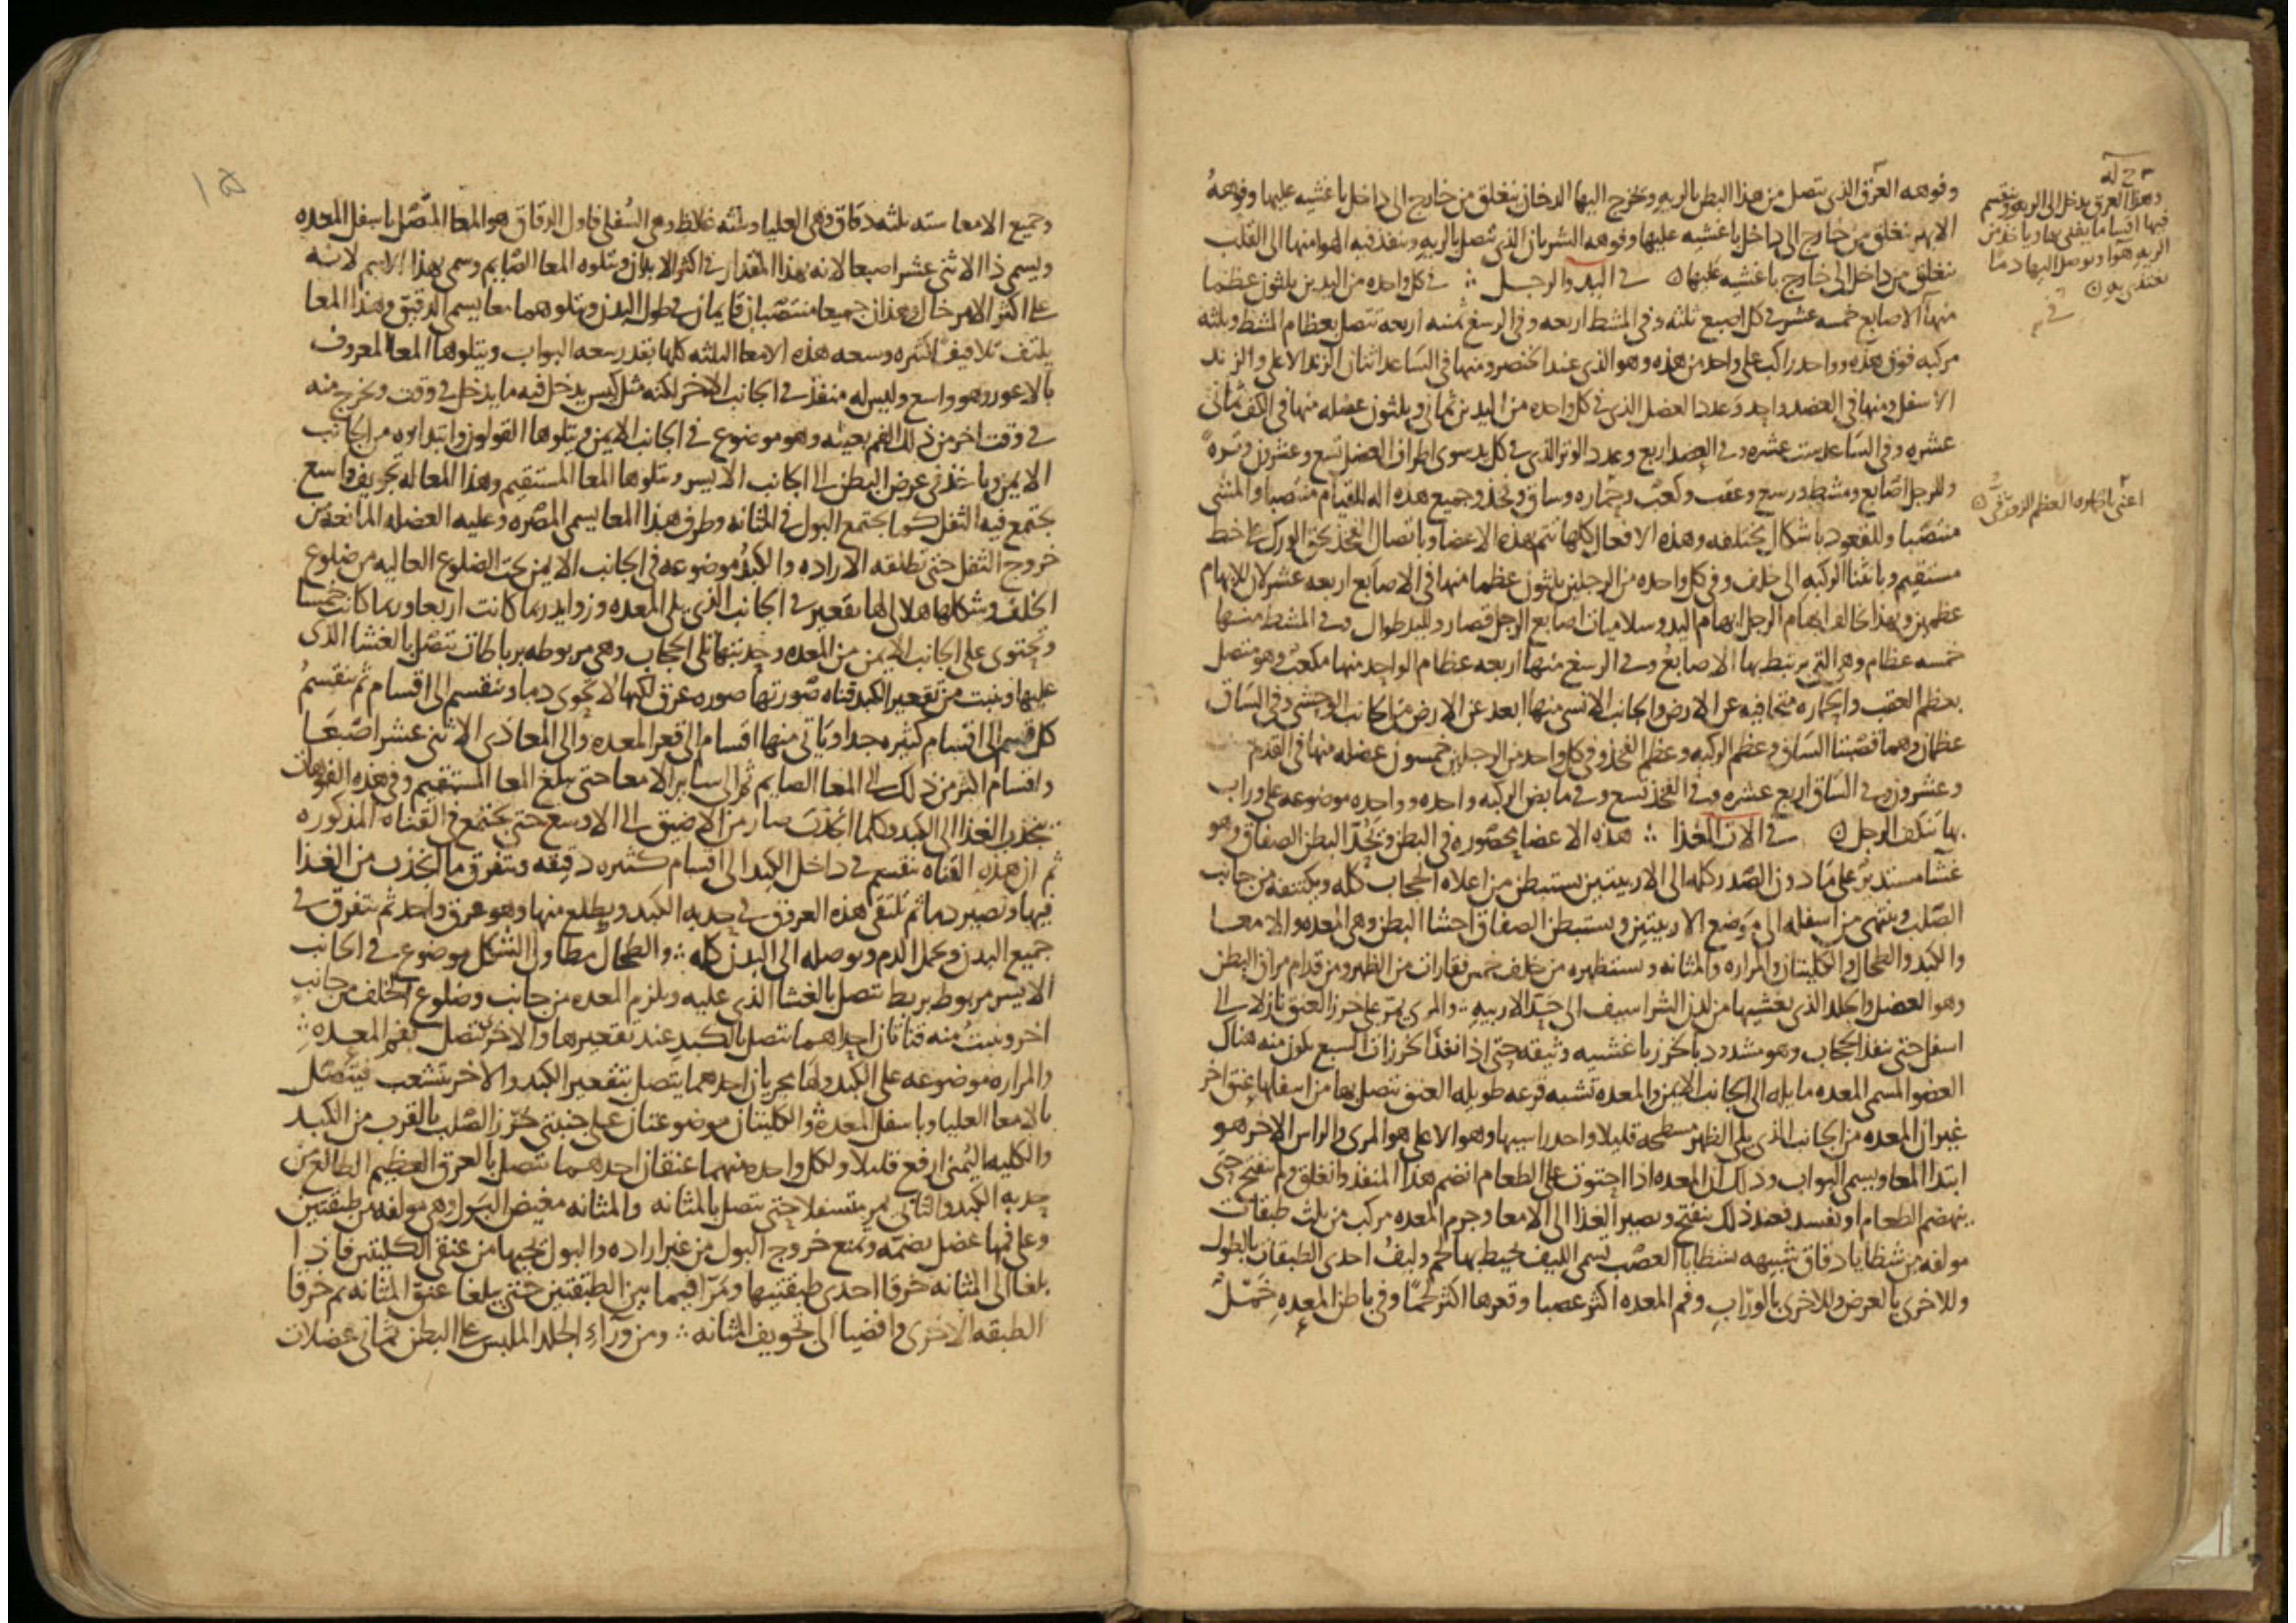 وفوهه العرق الذي يتصل من هذا البطن بالريه ويخرج اليها الدخان ينغلق من خارج الى داخل باغشيه عليها وفوهه
الابهر تنغلق من خارج الى داخل باغشيه عليها وفوهه الشريان الذي يتصل بالريه وينفذ فيه الهوا منها الى القلب
تنغلق من داخل الى خارج باغشيه عليها في اليد والرجل في كل واحده من اليدين ثلثون عظما
منها الاصابع خمسه عشر في كل اصبع ثلثه وفي المشط اربعه وفي الرسغ ثمنيه اربعه تتصل بعظام المشط وثلثه
مركبه فوق هذه وواحد راكب على واحد من هذه وهو الذي عند الخنصر ومنها في الساعد اثنان الزند الاعلى والزند
الاسفل ومنها في العضد واحد وعدد العضل الذي في كل واحده من اليدين ثمان وثلثون عضله منها في الكف ثماني
عشره وفي الساعد ست عشره وفي العضد اربع وعدد الوتر الذي في كل يد سوى اطراف العضل تسع وعشرون وتره
وللرجل اصابع ومشط ورسغ وعقب وكعب وحماره وساق وفخذ وجميع هذه اله للقيام منتصبا والمشي
منتصبا وللقعود باشكال مختلفه وهذه الافعال كلها تتم بهذه الاعضا وباتصال الفخذ بحق الورك على خط
مستقيم وبانثنا الركبه الى خلف وفي كل واحده من الرجلين ثلثون عظما منها في الاصابع اربعه عشر لان للابهام
عظمين وبهذا يخالف ابهام الرجل ابهام اليد وسلاميات اصابع الرجل قصار ولليد طوال وفي المشط منها
خمسه عظام وهي التي يرتبط بها الاصابع وفي الرسغ منها اربعه عظام الواحد منها مكعب وهو متصل
بعظم العقب والحماره متجافيه عن الارض والجانب الانسي منها ابعد عن الارض من الجانب الوحشي وفي الساق
عظمان وهما قصبتا الساق وعظم الركبه وعظم الفخذ وفي كل واحد من الرجلين خمسون عضله منها في القدم
وعشرون وفي الساق اربع عشره وفي الفخذ تسع وفي مابض الركبه واحده وواحده موضوعه على وراب
بها تنكف الرجل في الات الغذا هذه الاعضا محصوره في البطن ويحد البطن الصفاق وهو
غشا مستدير على ما دون الصدر كله الى الاربيتين يستبطن من اعلاه الحجاب كله ويكتنفه من جانب
الصلب وينتهي من اسفله الى موضع الاربيتين ويستبطن الصفاق احشا البطن وهي المعده والامعا
والكبد والطحال والكليتان والمراره والمثانه ويستظهره من خلف خمس فقارات من الظهر ومن قدام مراق البطن
وهو العضل والجلد الذي يغشيها من لدن الشراسيف الى حد الاربيه والمري يمر على خرز العنق نازلا الى
اسفل حتى ينفذ الحجاب وهو مشدود بالخرز باغشيه وثيقه حتى اذا نفذ الخرزات السبع يكون منه هناك
العضو المسمى المعده مايله الى الجانب الايمن والمعده تشبه قرعه طويله العنق تتصل بها من اسفلها عنق اخر
غير ان المعده من الجانب الذي يلي الظهر مسطحه قليلا واحد راسيها وهو الاعلى هو المري والراس الاخر هو
ابتدا المعا ويسمى البواب وذلك ان المعده اذا احتوت على الطعام انضم هذا المنفذ وانغلق ولم ينفتح حتى
ينهضم الطعام او يفسد فعند ذلك ينفتح ويصير الغذا الى الامعا وجرم المعده مركب من ثلث طبقات
مولفه من شظايا دقاق شبيهه بشظايا العصب تسمى الليف يحيط بها لحم وليف احدى الطبقات بالطول
وللاخرى بالعرض وللاخرى بالوراب وفم المعده اكثر عصبا وقعرها اكثر لحما وفي باطن المعده خمل
وهذا العرق يدخل الى الريه وينقسم
فيها اقساما
الريه هوا ويوصل اليها دما
تغتذي به
اعني بالحماره العظم الزورقي
١٥
وجميع الامعا سته ثلثه دقاق وهي العليا وثلثه غلاظ وهي السفلى فاول الدقاق هو المعا المتصل باسفل المعده
ويسمى ذا الاثنى عشر اصبعا لانه بهذا المقدار في اكثر الابدان ويتلوه المعا الصايم وسمي بهذا الاسم لانه
على اكثر الامر خال وهذان جميعا منتصبان قايمان في طول البدن ويتلوهما معا يسمى الدقيق وهذا المعا
يلتف تلافيف كثيره وسعه هذه الامعا الثلثه كلها بقدر سعه البواب ويتلوها المعا المعروف
بالاعور وهو واسع وليس له منفذ في الجانب الاخر لكنه مثل كيس يدخل فيه ما يدخل في وقت ويخرج منه
في وقت اخر من ذلك الفم بعينه وهو موضوع في الجانب الايمن ويتلوها القولون وابتداوه من الجانب
الايمن وياخذ في عرض البطن الى الجانب الايسر ويتلوها المعا المستقيم وهذا المعا له تجويف واسع
يجتمع فيه الثفل كما يجتمع البول في المثانه وطرف هذا المعا يسمى المصره وعليه العضله المانعه من
خروج الثفل حتى تطلقه الاراده والكبد موضوعه في الجانب الايمن تحت الضلوع العاليه من ضلوع
الخلف وشكلها هلالي لها تقعير في الجانب الذي يلي المعده وزوايد ربما كانت اربعا وربما كانت خمسا
وتحتوي على الجانب الايمن من المعده وحدبتها تلي الحجاب وهي مربوطه برباطات تتصل بالغشا الذي
عليها وينبت من تقعير الكبد قناه صورتها صوره عرق لكنها لا تحوي دما وتنقسم الى اقسام ثم تنقسم
كل قسم الى اقسام كثيره جدا وياتي منها اقسام الى قعر المعده والى المعا ذي الاثنى عشر اصبعا
واقسام اكثر من ذلك الى المعا الصايم ثم الى ساير الامعا حتى يبلغ المعا المستقيم وفي هذه الفوهات
ينجذب الغذا الى الكبد وكلما انجذب صار من الاضيق الى الاوسع حتى يجتمع في القناه المذكوره
ثم ان هذه القناه تنقسم في داخل الكبد الى اقسام كثيره دقيقه ويتفرق ما انجذب من الغذا
فيها ويصير دما ثم تلتقي هذه العروق في حدبه الكبد ويطلع منها وهو عرق واحد ثم يتفرق في
جميع البدن ويحمل الدم ويوصله الى البدن كله والطحال مطاول الشكل موضوع في الجانب
الايسر مربوط بربط تتصل بالغشا الذي عليه ويلزم المعده من جانب وضلوع الخلف من جانب
اخر وينبت منه قناتان احداهما تتصل بالكبد عند تقعيرها والاخرى تتصل بفم المعده
والمراره موضوعه على الكبد ولها مجريان احدهما يتصل بتقعير الكبد والاخر يتشعب فيتصل
بالامعا العليا وباسفل المعده والكليتان موضوعتان على جنبتي خرز الصلب بالقرب من الكبد
والكليه اليمنى ارفع قليلا ولكل واحده منهما عنقان احدهما يتصل بالعرق العظيم الطالع من
حدبه الكبد والثاني يمر متسفلا حتى يتصل بالمثانه والمثانه مغيض البول وهي مولفه من طبقتين
وعلى فمها عضل يضمه ويمنع خروج البول من غير اراده والبول يجيها من عنقي الكليتين فاذا
بلغا الى المثانه خرقا احدى طبقتيها ومرا فيما بين الطبقتين حتى يبلغا عنق المثانه ثم خرقا
الطبقه الاخرى وافضيا الى تجويف المثانه ومن ورآء الجلد الملبس على البطن ثماني عضلات